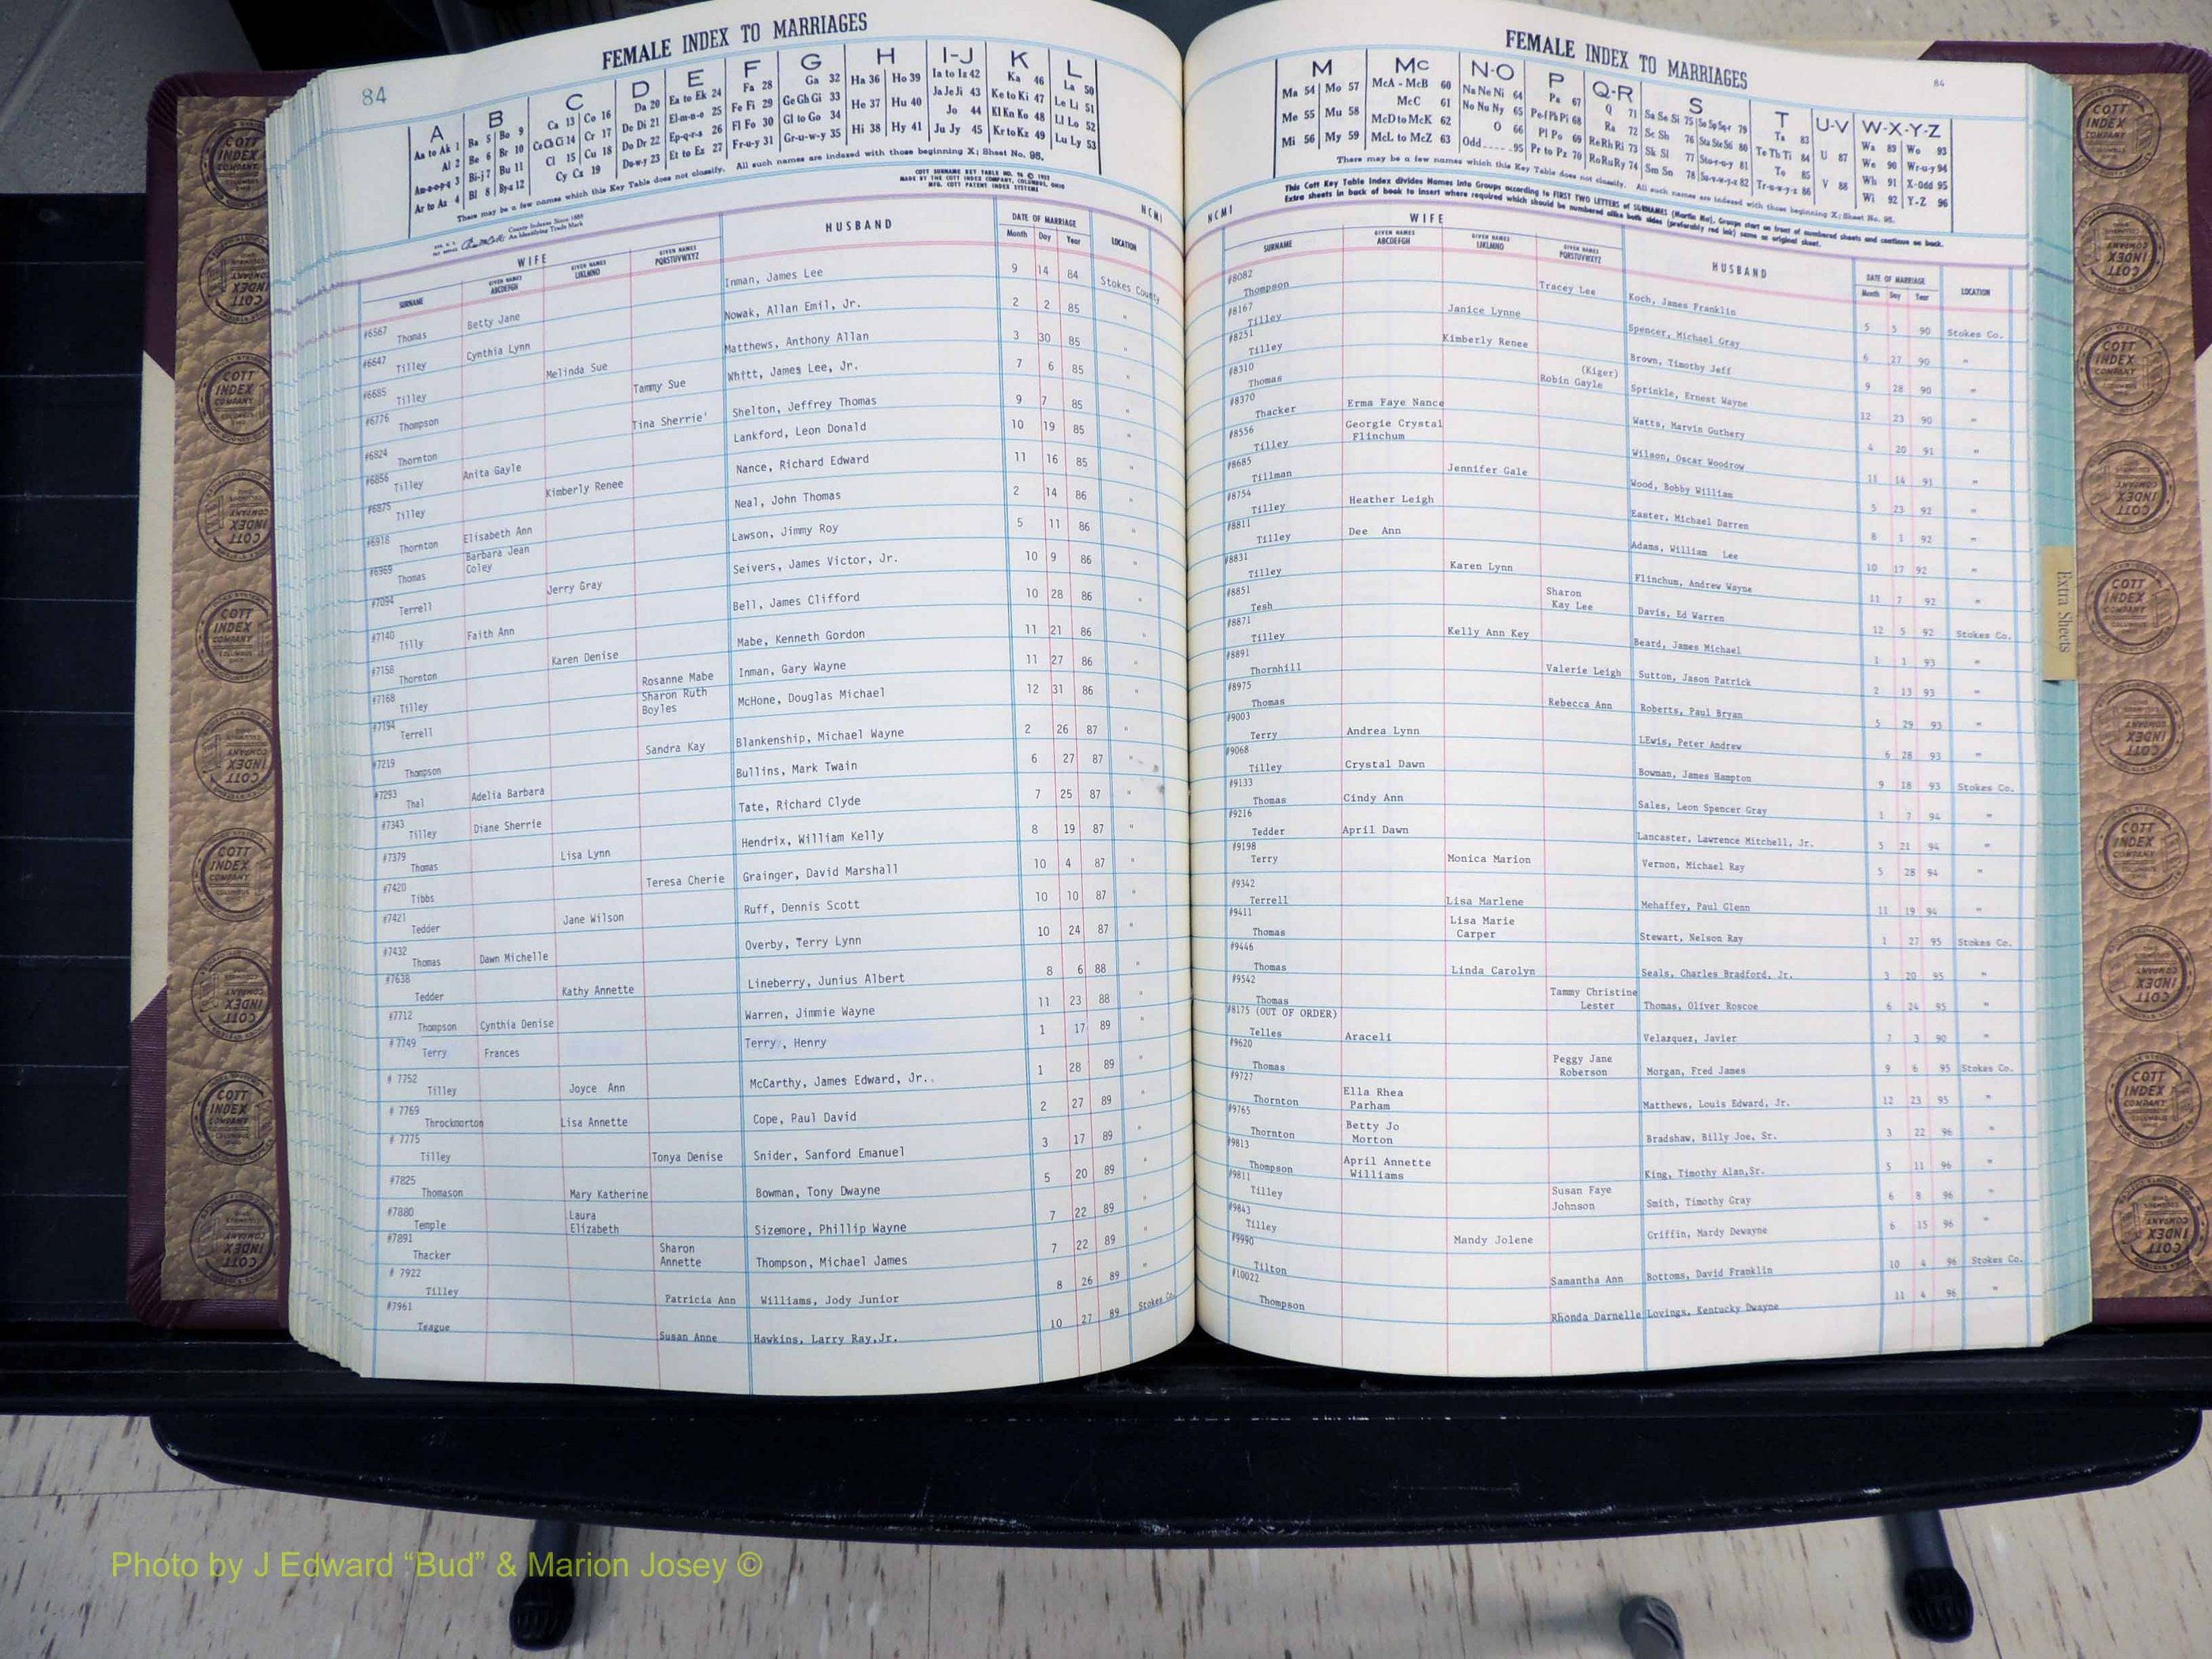 84
FEMALE INDEX TO MARRIAGES
A B C D E F G H I-J K L
Aa to Ak 1 Ba 5 Bo 9 Ca 13 Co 16 Da 20 Ea to Ek 24 Fa 28 Ga 32 Ha 36 Ho 39 Ia to Iz 42 Ka 46 La 50
Al 2 Be 6 Br 10 Ce Ch Ci 14 Cr 17 De Di 21 El-m-n-o 25 Fe Fi 29 Ge Gh Gi 33 He 37 Hu 40 Ja Je Ji 43 Ke to Ki 47 Le Li 51
Am-n-o-p-q 3 Bi-j 7 Bu 11 Cl 15 Cu 18 Do Dr 22 Ep-q-r-s 26 Fl Fo 30 Gl to Go 34 Hi 38 Hy 41 Jo 44 Kl Kn Ko 48 Ll Lo 52
Ar to Az 4 Bl 8 By-z 12 Cy Cz 19 Du-w-y 23 Et to Ez 27 Fr-u-y 31 Gr-u-w-y 35 Ju Jy 45 Kr to Kz 49 Lu Ly 53
There may be a few names which this Key Table does not classify. All such names are indexed with those beginning X; Sheet No. 95.
COTT SURNAME KEY TABLE NO. 96 © 1932
MADE BY THE COTT INDEX COMPANY, COLUMBUS, OHIO
MFD. COTT PATENT INDEX SYSTEMS
County Indexes Since 1888
An Identifying Trade Mark
NCMI
WIFE HUSBAND DATE OF MARRIAGE LOCATION
SURNAME GIVEN NAMES ABCDEFGH GIVEN NAMES IJKLMNO GIVEN NAMES PQRSTUVWXYZ Month Day Year
#6567 Thomas Betty Jane Inman, James Lee 9 14 84 Stokes County
#6647 Tilley Cynthia Lynn Nowak, Allan Emil, Jr. 2 2 85 "
#6685 Tilley Melinda Sue Matthews, Anthony Allan 3 30 85 "
#6776 Thompson Tammy Sue Whitt, James Lee, Jr. 7 6 85 "
#6824 Thornton Tina Sherrie' Shelton, Jeffrey Thomas 9 7 85 "
#6856 Tilley Anita Gayle Lankford, Leon Donald 10 19 85 "
#6875 Tilley Kimberly Renee Nance, Richard Edward 11 16 85 "
#6918 Thornton Elisabeth Ann Neal, John Thomas 2 14 86 "
#6969 Thomas Barbara Jean Coley Lawson, Jimmy Roy 5 11 86 "
#7094 Terrell Jerry Gray Seivers, James Victor, Jr. 10 9 86 "
#7140 Tilly Faith Ann Bell, James Clifford 10 28 86 "
#7158 Thornton Karen Denise Mabe, Kenneth Gordon 11 21 86 "
#7168 Tilley Rosanne Mabe Inman, Gary Wayne 11 27 86 "
#7194 Terrell Sharon Ruth Boyles McHone, Douglas Michael 12 31 86 "
#7219 Thompson Sandra Kay Blankenship, Michael Wayne 2 26 87 "
#7293 Thal Adelia Barbara Bullins, Mark Twain 6 27 87 "
#7343 Tilley Diane Sherrie Tate, Richard Clyde 7 25 87 "
#7379 Thomas Lisa Lynn Hendrix, William Kelly 8 19 87 "
#7420 Tibbs Teresa Cherie Grainger, David Marshall 10 4 87 "
#7421 Tedder Jane Wilson Ruff, Dennis Scott 10 10 87 "
#7432 Thomas Dawn Michelle Overby, Terry Lynn 10 24 87 "
#7638 Tedder Kathy Annette Lineberry, Junius Albert 8 6 88 "
#7712 Thompson Cynthia Denise Warren, Jimmie Wayne 11 23 88 "
# 7749 Terry Frances Terry, Henry 1 17 89 "
# 7752 Tilley Joyce Ann McCarthy, James Edward, Jr. 1 28 89 "
# 7769 Throckmorton Lisa Annette Cope, Paul David 2 27 89 "
# 7775 Tilley Tonya Denise Snider, Sanford Emanuel 3 17 89 "
#7825 Thomason Mary Katherine Bowman, Tony Dwayne 5 20 89 "
#7880 Temple Laura Elizabeth Sizemore, Phillip Wayne 7 22 89 "
#7891 Thacker Sharon Annette Thompson, Michael James 7 22 89 "
# 7922 Tilley Patricia Ann Williams, Jody Junior 8 26 89 "
#7961 Teague Susan Anne Hawkins, Larry Ray,Jr. 10 27 89 Stokes Co.
FEMALE INDEX TO MARRIAGES
84
M Mc N-O P Q-R S T U-V W-X-Y-Z
Ma 54 Mo 57 McA - McB 60 Na Ne Ni 64 Pa 67 Q 71 Sa Se Si 75 So Sp Sq-r 79 Ta 83 Wa 89 Wo 93
Me 55 Mu 58 McC 61 No Nu Ny 65 Pe-f Ph Pi 68 Ra 72 Sc Sh 76 Sta Ste Sti 80 Te Th Ti 84 U 87 We 90 Wr-u-y 94
Mi 56 My 59 McD to McK 62 O 66 Pl Po 69 Re Rh Ri 73 Sk Sl 77 Sto-r-u-y 81 To 85 V 88 Wh 91 X-Odd 95
McL to McZ 63 Odd.....95 Pr to Pz 70 Ro Ru Ry 74 Sm Sn 78 Su-v-w-y-z 82 Tr-u-w-y-z 86 Wi 92 Y-Z 96
There may be a few names which this Key Table does not classify. All such names are indexed with those beginning X; Sheet No. 95.
This Cott Key Table Index divides Names into Groups according to FIRST TWO LETTERS of SURNAMES (Martin Ma). Groups start on front of numbered sheets and continue on back.
Extra sheets in back of book to insert where required which should be numbered alike both sides (preferably red ink) same as original sheet.
NCMI
WIFE HUSBAND DATE OF MARRIAGE LOCATION
SURNAME GIVEN NAMES ABCDEFGH GIVEN NAMES IJKLMNO GIVEN NAMES PQRSTUVWXYZ Month Day Year
#8082 Thompson Tracey Lee Koch, James Franklin 5 5 90 Stokes Co.
#8167 Tilley Janice Lynne Spencer, Michael Gray 6 27 90 "
#8251 Tilley Kimberly Renee Brown, Timothy Jeff 9 28 90 "
#8310 Thomas (Kiger) Robin Gayle Sprinkle, Ernest Wayne 12 23 90 "
#8370 Thacker Erma Faye Nance Watts, Marvin Guthery 4 20 91 "
#8556 Tilley Georgie Crystal Flinchum Wilson, Oscar Woodrow 11 14 91 "
#8685 Tillman Jennifer Gale Wood, Bobby William 5 23 92 "
#8754 Tilley Heather Leigh Easter, Michael Darren 8 1 92 "
#8811 Tilley Dee Ann Adams, William Lee 10 17 92 "
#8831 Tilley Karen Lynn Flinchum, Andrew Wayne 11 7 92 "
#8851 Tesh Sharon Kay Lee Davis, Ed Warren 12 5 92 Stokes Co.
#8871 Tilley Kelly Ann Key Beard, James Michael 1 1 93 "
#8891 Thornhill Valerie Leigh Sutton, Jason Patrick 2 13 93 "
#8975 Thomas Rebecca Ann Roberts, Paul Bryan 5 29 93 "
#9003 Terry Andrea Lynn LEwis, Peter Andrew 6 28 93 "
#9068 Tilley Crystal Dawn Bowman, James Hampton 9 18 93 Stokes Co.
#9133 Thomas Cindy Ann Sales, Leon Spencer Gray 1 7 94 "
#9216 Tedder April Dawn Lancaster, Lawrence Mitchell, Jr. 5 21 94 "
#9198 Terry Monica Marion Vernon, Michael Ray 5 28 94 "
#9342 Terrell Lisa Marlene Mehaffey, Paul Glenn 11 19 94 "
#9411 Thomas Lisa Marie Carper Stewart, Nelson Ray 1 27 95 Stokes Co.
#9446 Thomas Linda Carolyn Seals, Charles Bradford, Jr. 3 20 95 "
#9542 Thomas Tammy Christine Lester Thomas, Oliver Roscoe 6 24 95 "
#8175 (OUT OF ORDER) Telles Araceli Velazquez, Javier 7 3 90 "
#9620 Thomas Peggy Jane Roberson Morgan, Fred James 9 6 95 Stokes Co.
#9727 Thornton Ella Rhea Parham Matthews, Louis Edward, Jr. 12 23 95 "
#9765 Thornton Betty Jo Morton Bradshaw, Billy Joe, Sr. 3 22 96 "
#9813 Thompson April Annette Williams King, Timothy Alan,Sr. 5 11 96 "
#9811 Tilley Susan Faye Johnson Smith, Timothy Gray 6 8 96 "
#9843 Tilley Mandy Jolene Griffin, Mardy Dewayne 6 15 96 "
#9990 Tilton Samantha Ann Bottoms, David Franklin 10 4 96 Stokes Co.
#10022 Thompson Rhonda Darnelle Lovings, Kentucky Dwayne 11 4 96 "
Extra Sheets
COTT INDEX COMPANY
Photo by J Edward “Bud” & Marion Josey ©